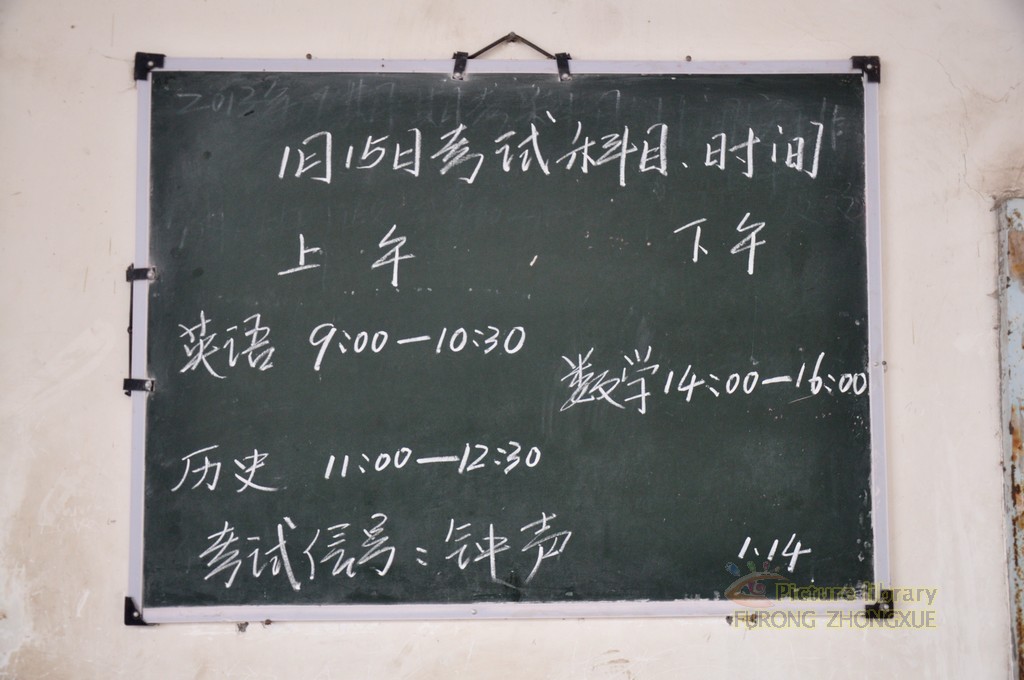 1月15日考试科目、时间
上午 下午
英语 9:00—10:30
数学14:00—16:00
历史 11:00—12:30
考试信号:钟声
1.14
Picture library
FURONG ZHONGXUE